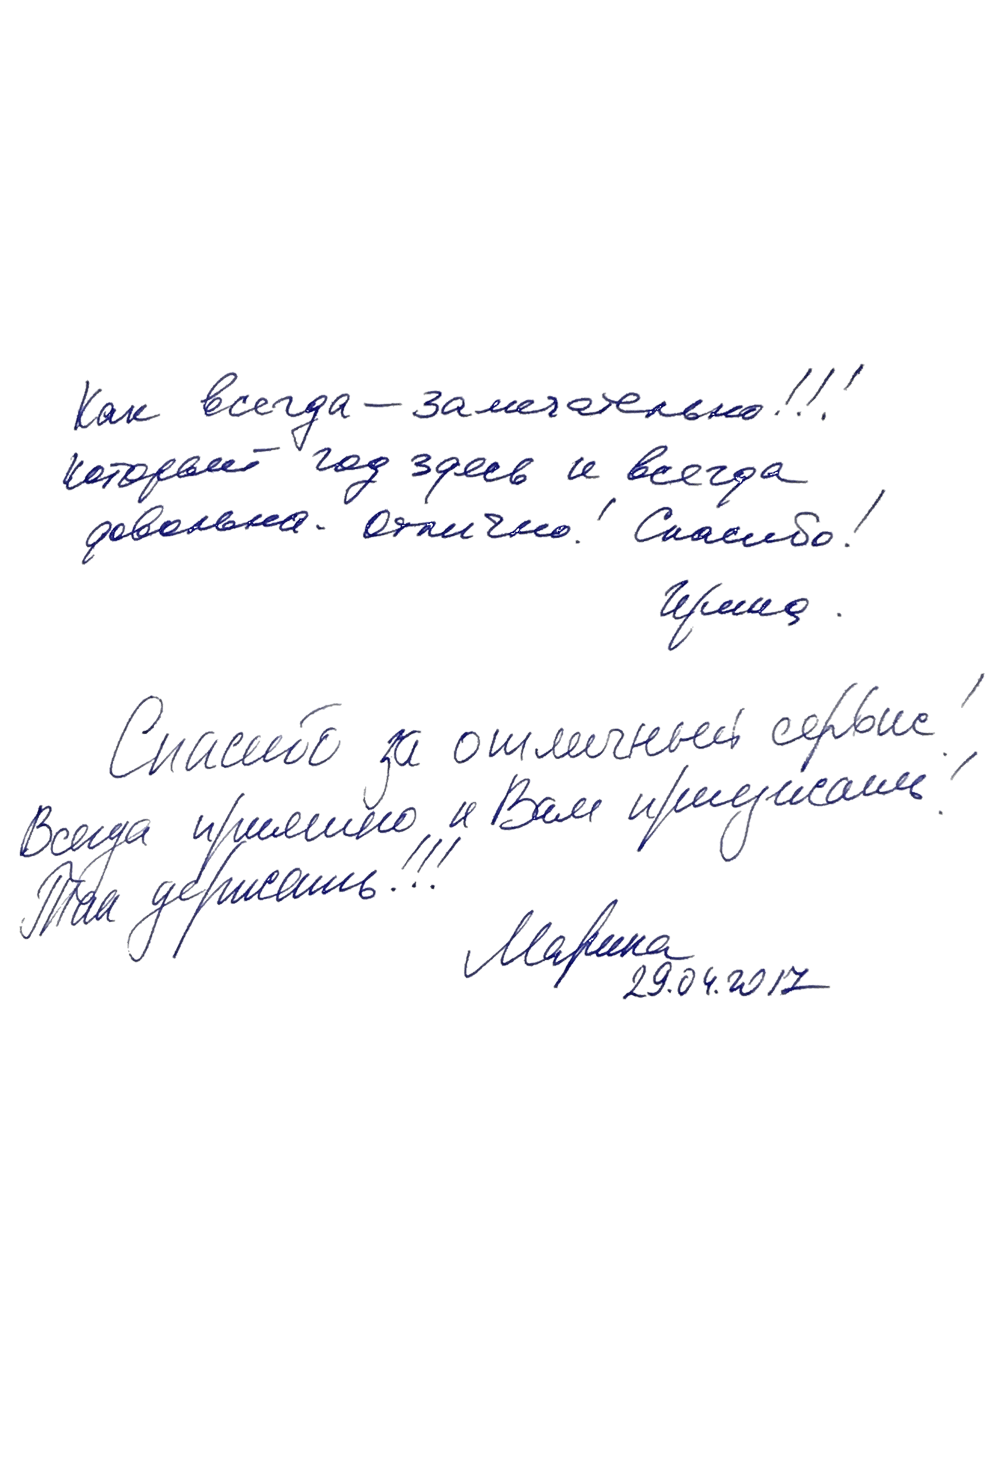 Как всегда – замечательно!!!
Который год здесь и всегда
довольна. Отлично! Спасибо!
Ирина.
Спасибо за отличный сервис!
Всегда приятно к Вам приезжать!
Так держать!!!
Марина
29.04.2017